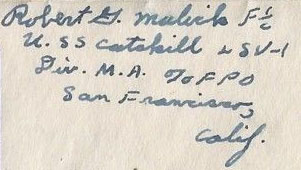 Robert G. Malick F 1/c
U.S.S Catskill LSV-1
Div. M.A. % FPO
San Francisco,
Calif.